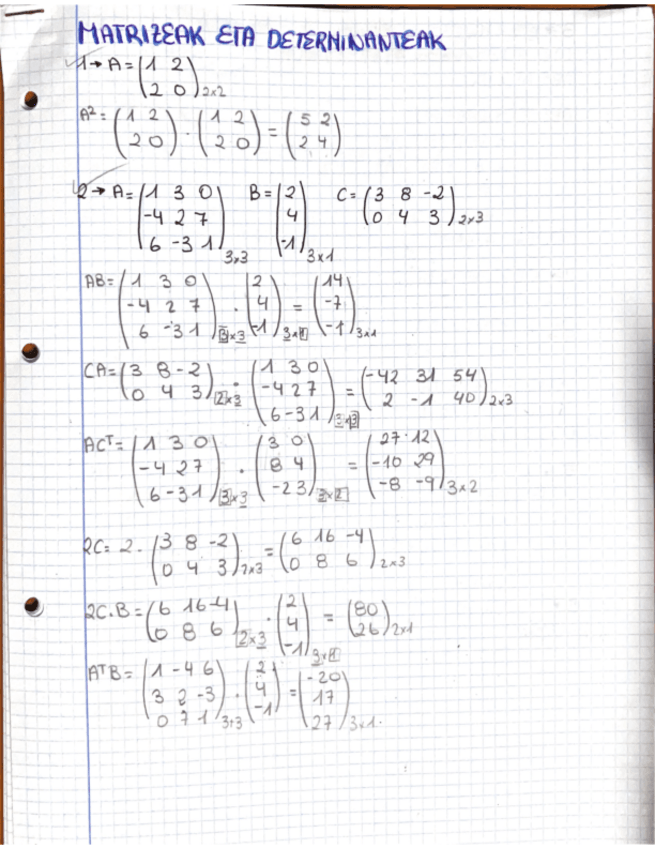 MATRIZEAK ETA DETERMINANTEAK
1→ A = (1 2
2 0)2x2
A² = (1 2
2 0) · (1 2
2 0) = (5 2
2 4)
2→ A = (1 3 0
-4 2 7
6 -3 1)3x3 B = (2
4
-1)3x1 C = (3 8 -2
0 4 3)2x3
AB = (1 3 0
-4 2 7
6 -3 1)3x3 · (2
4
-1)3x1 = (14
-7
-1)3x1
CA = (3 8 -2
0 4 3)2x3 · (1 3 0
-4 2 7
6 -3 1)3x3 = (-42 31 54
2 -1 40)2x3
ACᵀ = (1 3 0
-4 2 7
6 -3 1)3x3 · (3 0
8 4
-2 3)3x2 = (27 12
-10 29
-8 -9)3x2
2C = 2 · (3 8 -2
0 4 3)2x3 = (6 16 -4
0 8 6)2x3
2C·B = (6 16 -4
0 8 6)2x3 · (2
4
-1)3x1 = (80
26)2x1
AᵀB = (1 -4 6
3 2 -3
0 7 1)3x3 · (2
4
-1) = (-20
17
27)3x1.